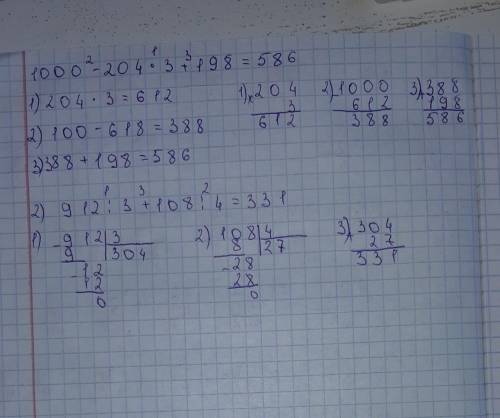 1000 ² - 204 ¹· 3 ³+ 198 = 586
1) 204 · 3 = 612
2) 100 - 618 = 388
3) 388 + 198 = 586
1) × 204
3
612
2) 1000
612
388
3) 388
198
586
2) 912 ¹: 3 ³+ 108 ²: 4 = 331
1) - 912 3
9 304
- 12
12
0
2) 108 4
8 27
- 28
28
0
3) 304
27
331